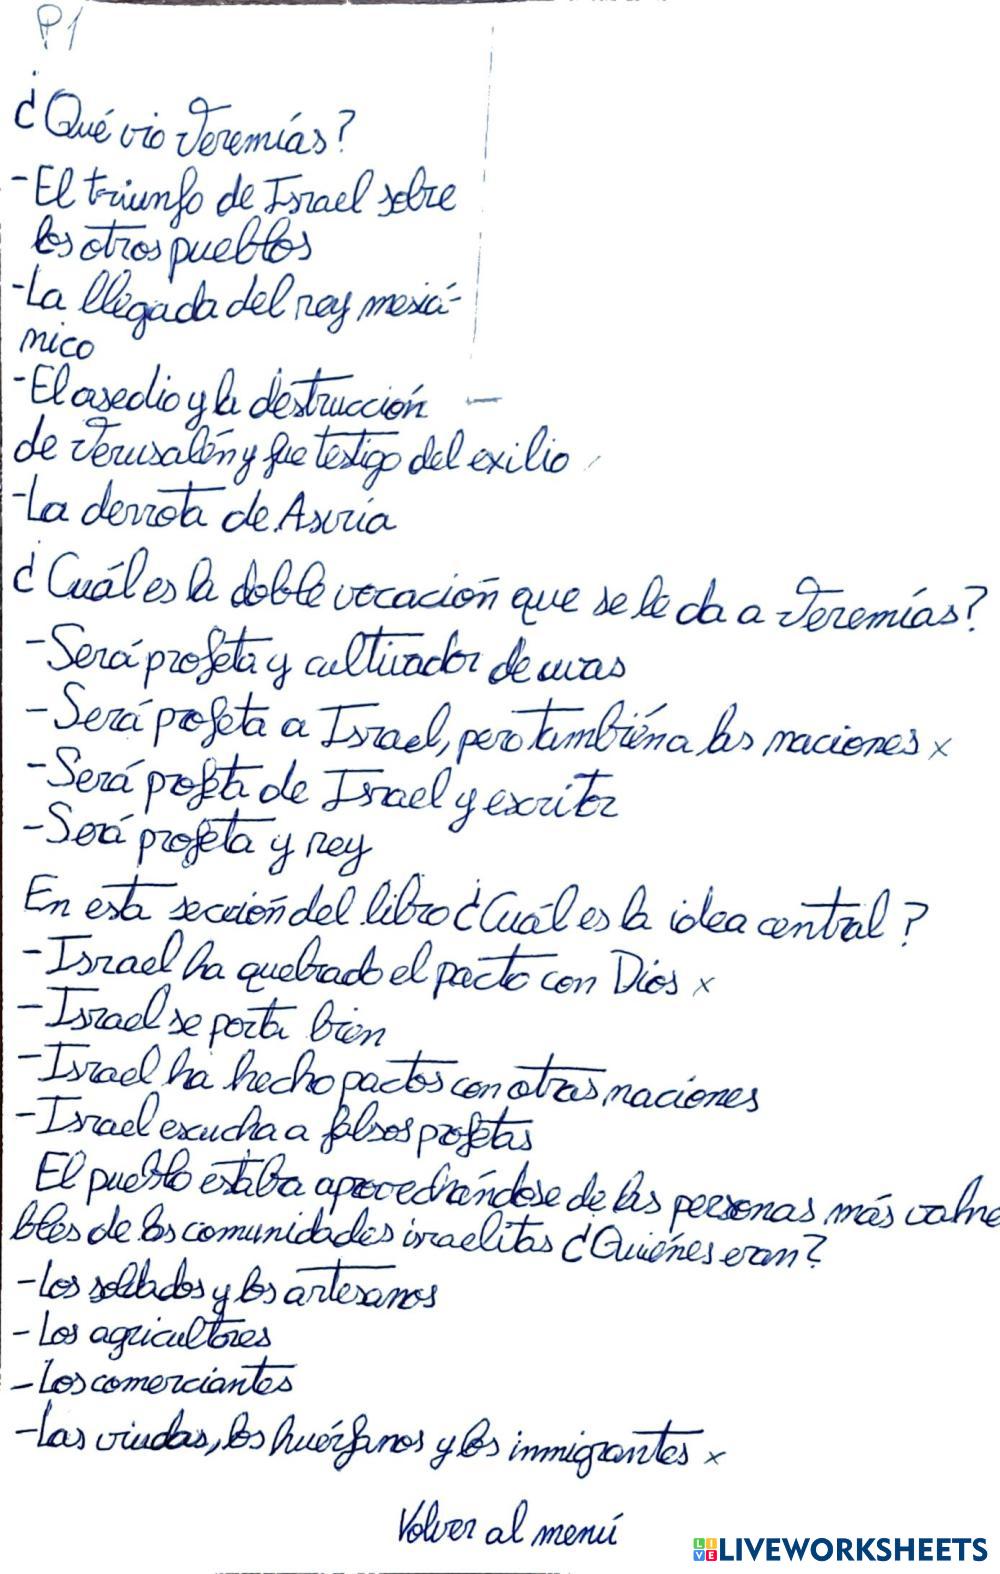 P1
¿Qué vio Jeremías?
-El triunfo de Israel sobre
los otros pueblos
-La llegada del rey mesiá-
nico
-El asedio y la destrucción
de Jerusalén y fue testigo del exilio
-La derrota de Asiria
¿Cuál es la doble vocación que se le da a Jeremías?
-Será profeta y cultivador de uvas
-Será profeta a Israel, pero también a las naciones x
-Será profeta de Israel y escritor
-Será profeta y rey
En esta sección del libro ¿Cuál es la idea central?
-Israel ha quebrado el pacto con Dios x
-Israel se porta bien
-Israel ha hecho pactos con otras naciones
-Israel escucha a falsos profetas
El pueblo estaba aprovechándose de las personas más vulne
bles de las comunidades israelitas ¿Quiénes eran?
-Los soldados y los artesanos
-Los agricultores
-Los comerciantes
-Las viudas, los huérfanos y los inmigrantes x
Volver al menú
LIVEWORKSHEETS